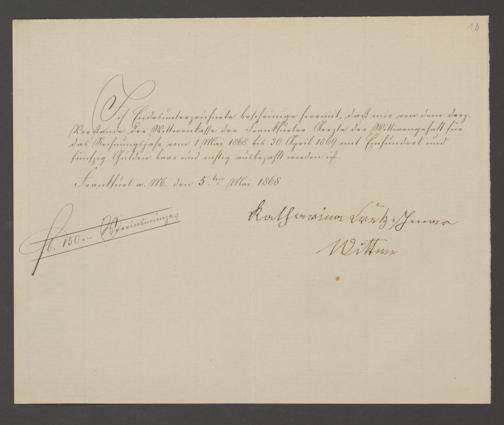 18
Ich Endesunterzeichnete bescheinige hiermit, daß mir von dem derz.
Vorstande der Wittwenkasse der Frankfurter Aerzte der Wittwengehalt für
das Rechnungsjahr vom 1 Mai 1868 bis 30 April 1869 mit Einhundert und
fünfzig Gulden baar und richtig ausbezahlt worden ist.
Frankfurt a. M. den 5ten Mai 1868
fl. 150 Vereinsmünze
Katharina
Wittwe